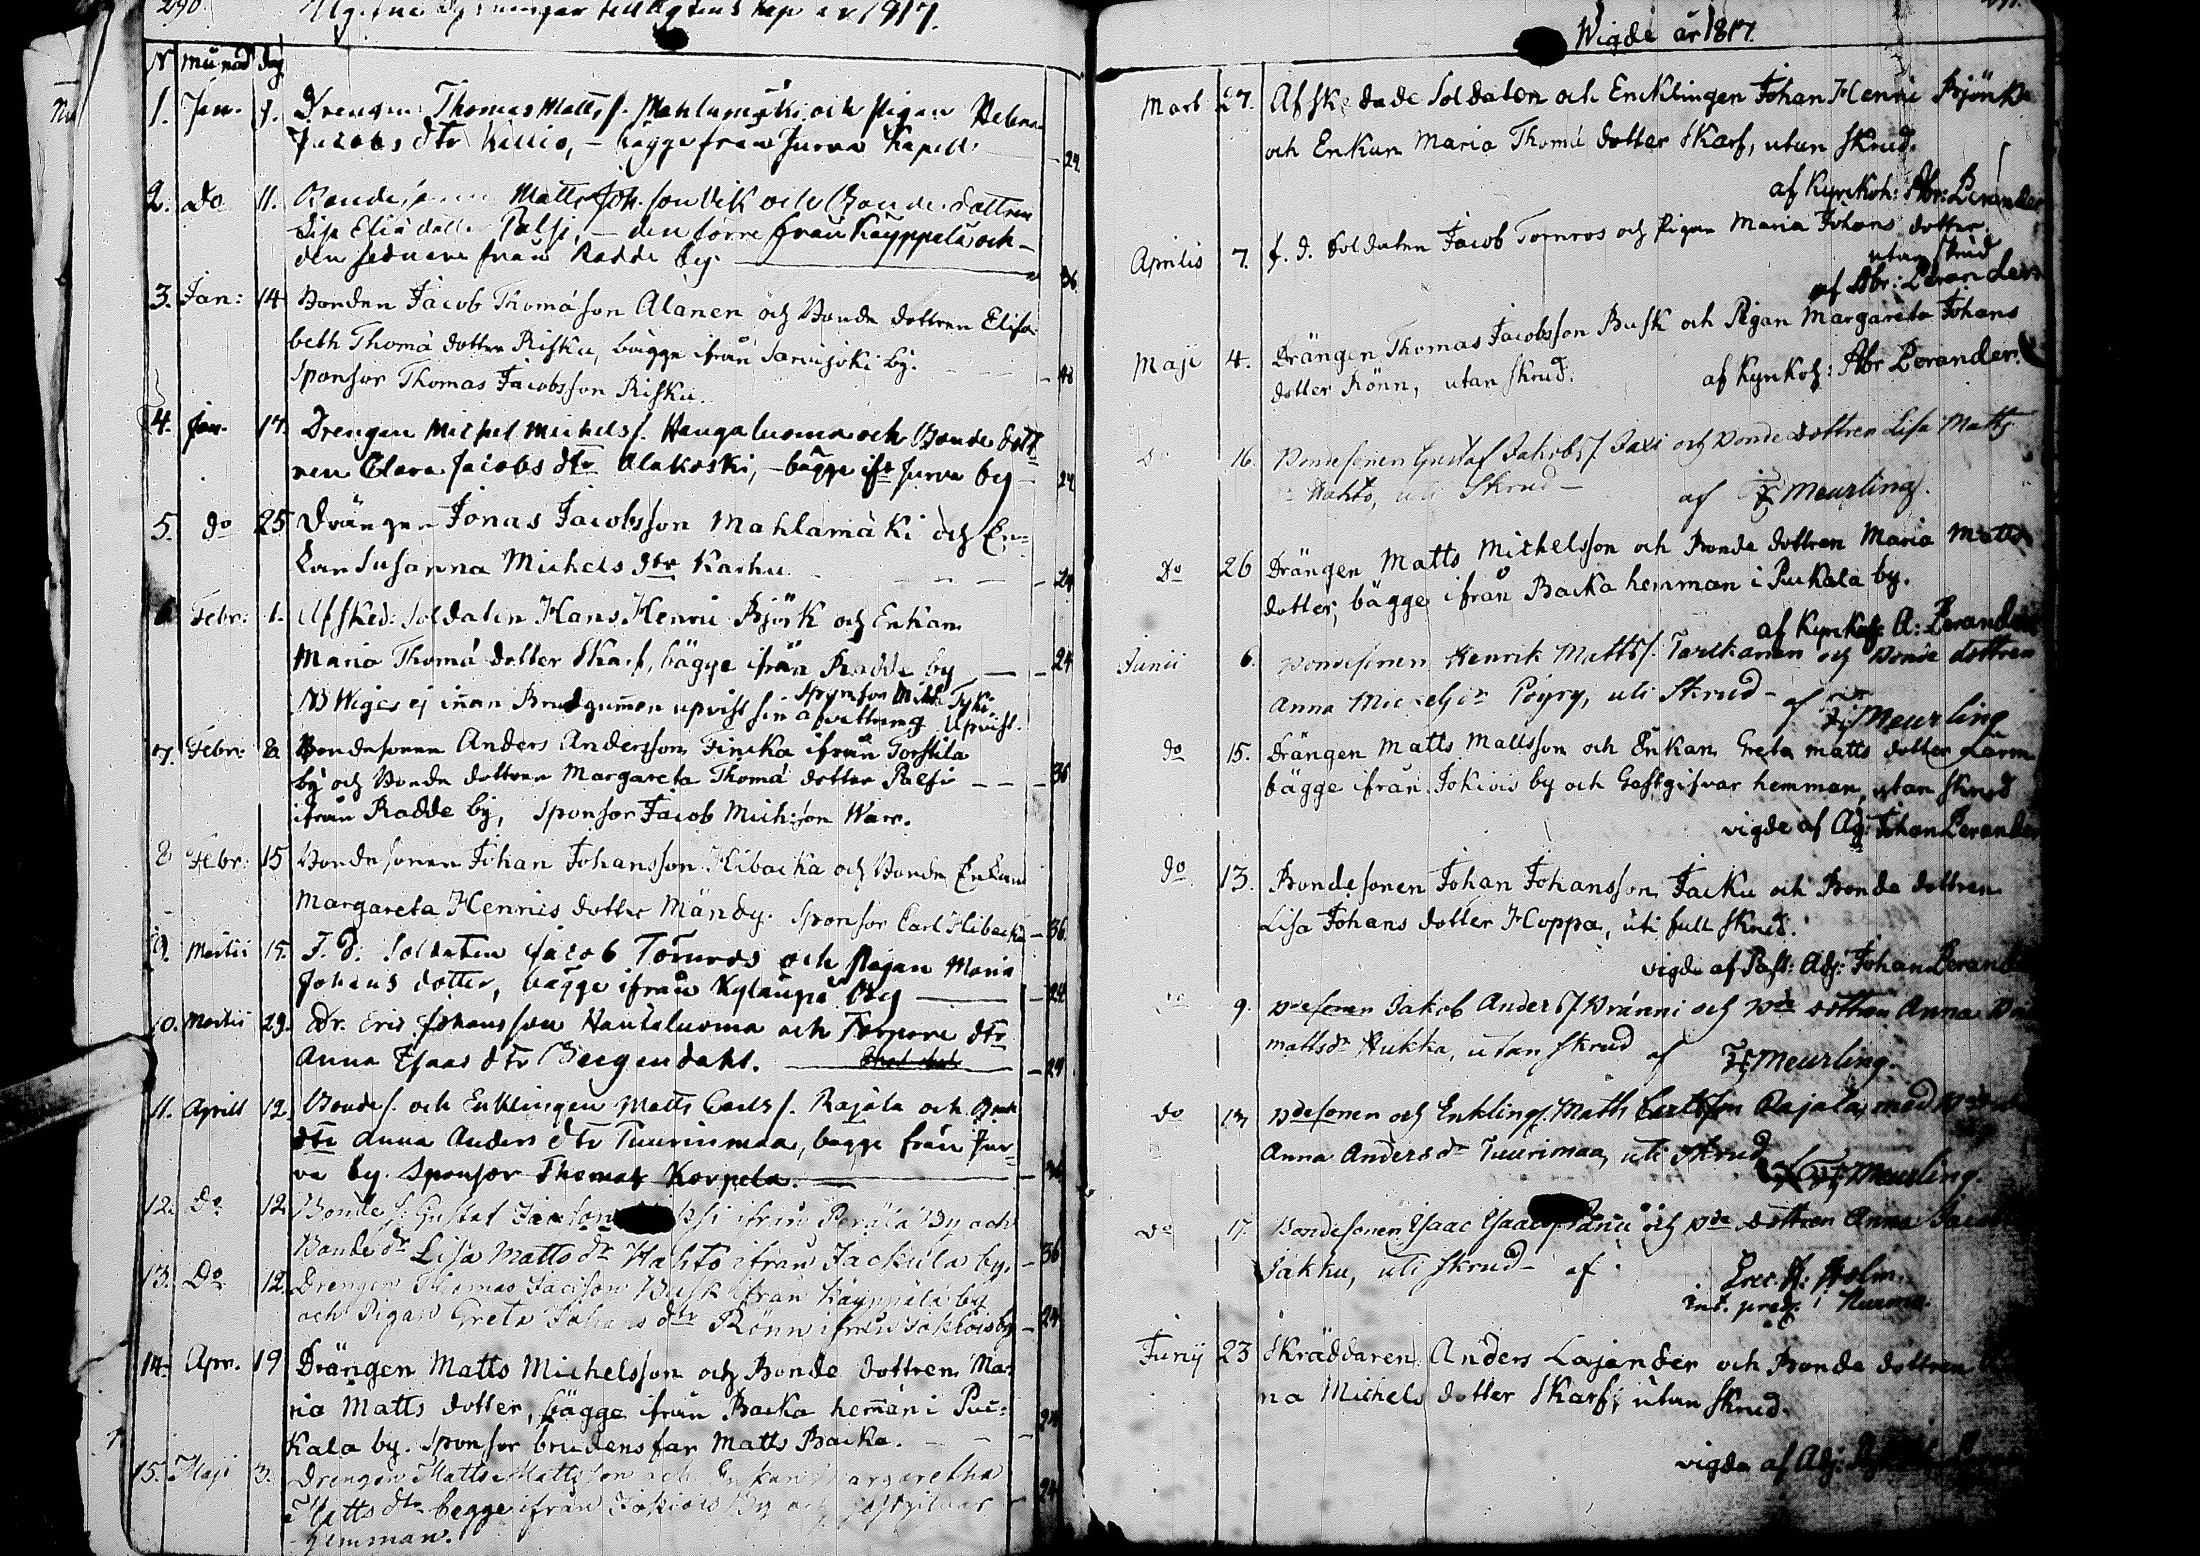 290.
Utgifne Lysningar till Ägtenskap år 1817.
N månad dag
1. Jan. 1. Drengen Thomas Matts s. Mahlamäki och Pigan Helena
Jacobs dtr Kallio, – bägge från Jurva Kapell – 24
2. Do 11. Bondesonen Matts Joh. son Vik och Bonde dottren
Lisa Eliæ dotter Palsi, – den förre från Käyppelä och –
den sednare från Radde by. 36
3. Jan: 14 Bonden Jacob Thomæ son Alanen och Bonde dottren Elisa
beth Thomæ dotter Risku, bägge ifrån Sarvijoki by.
Sponsor Thomas Jacobsson Risku. – 48
4. Jan. 17. Drengen Michel Michels s. Haugaluoma och Bonde dott
ren Clara Jacobs dtr Alakoski, – bägge ifr Jurva by – 24
5. do 25 Drängen Jonas Jacobsson Mahlamäki och En=
kan Susanna Michels dtr Karhu – 24
6 Febr: 1. Afsked: Soldaten Hans Henric Björk och Enkan
Maria Thomæ dotter Skarf, bägge ifrån Radde by – 24
NB Wiges ej innan Brudgummen upvist sin afvittring Upvist.
Sponsor Mich Tyki
7. Febr: 8 Bondesonen Anders Andersson Fincka ifrån Torstila
by och Bonde dottren Margareta Thomæ dotter Palsi – – 36
ifrån Radde by, Sponsor Jacob Mich:son Warr.
8 Febr: 15 Bondesonen Johan Johansson Hibacka och Bonde Enkan
Margareta Henrics dotter Mänby. Sponsor Carl Hibacka – 36
9. Martii 15. F. d. Soldaten Jacob Tornros och Pigan Maria
Johans dotter, bägge ifrån Kylänpä By – 24
10. Martii 29. Dr. Eric Johansson Hautaluoma och Torpare dtr
Anna Isaacs dtr Bergendahl. – 24
11. Aprill 12. Bondes. och Enklingen Matts Carls s. Rajala och Bonde
dtr Anna Anders dtr Tuurinmaa, bägge från Jur=
va by. Sponsor Thomas Korpela. – 36
12. Do 12. Bonde s. Gustaf Jacobson ifrån Perälä By och
Bonde dr Lisa Matts dr Hahto ifrån Jackula by. – 36
13. Do 12. Drengen Thomas Jacobson Busk ifrån Käyppälä by
och Pigan Greta Johans dtr Rönn ifrån Jokiois by – 24
14. Apr. 19 Drängen Matts Michelsson och Bonde dottren Ma=
ria Matts dotter, bägge ifrån Backa hemman i Puc=
kala by. Sponsor brudens far Matts Backa. – 24
15. Maji 3. Drengen Matts Mattsson och Enkan Margaretha
Matts dtr begge ifrån Jokiois By och Gästgifvar – 24
hemman.
Wigde år 1817.
Mart 27. Afskedade Soldaten och Encklingen Johan Henric Björk
och Enkan Maria Thomæ dotter Skarf, utan Skrud.
af Kyrkoh: Abr: Perander
Aprilis 7. f. d. Soldaten Jacob Tornros och Pigan Maria Johans dotter
utan skrud
af Abr: Perander
Maji 4. Drängen Thomas Jacobsson Busk och Pigan Margareta Johans
dotter Rönn, utan skrud. af Kyrkoh: Abr Perander.
Do 16. Bondesonen Gustaf Jakobs s. och Bonde dottren Lisa Matts
dr Hahto, uti Skrud – af Meurling.
Do 26 Drängen Matts Michelsson och Bonde dottren Maria Matts
dotter, bägge ifrån Backa hemman i Puckala by.
af Kyrkoh: A: Perander
Junii 6. Bondesonen Henrik Matts s. Tarkkanen och Bonde dottren
Anna Michels dr Pöyry, uti Skrud – af Meurling
do 15. Drängen Matts Mattsson och Enkan Greta Matts dotter
bägge ifrån Jokiois by och Gästgifvar hemman, utan Skrud
vigde af Adj: Johan Perander
do 13. Bondesonen Johan Johansson Jacku och Bonde dottren
Lisa Johans dotter Hoppa, uti full Skrud.
vigde af Past: Adj: Johan Perander
do 9. Bdesonen Jakob Anders s. Pränni och Bde dottren Anna
Matts dr Hukka, utan Skrud af Meurling.
do 13 Bdesonen och Enklingen Matts Carlsson Rajala, med
Anna Anders dr Tuurimaa, uti Skrud
af Meurling.
Do 17. Bondesonen Isaac Isaacs s. Panu och Bde dottren Anna Jacobs
Jakku, uti Skrud – af Holm.
Junij 23 Skräddaren Anders Lajander och Bonde dottren
na Michels dotter Skarf, utan Skrud.
vigde af Adj: